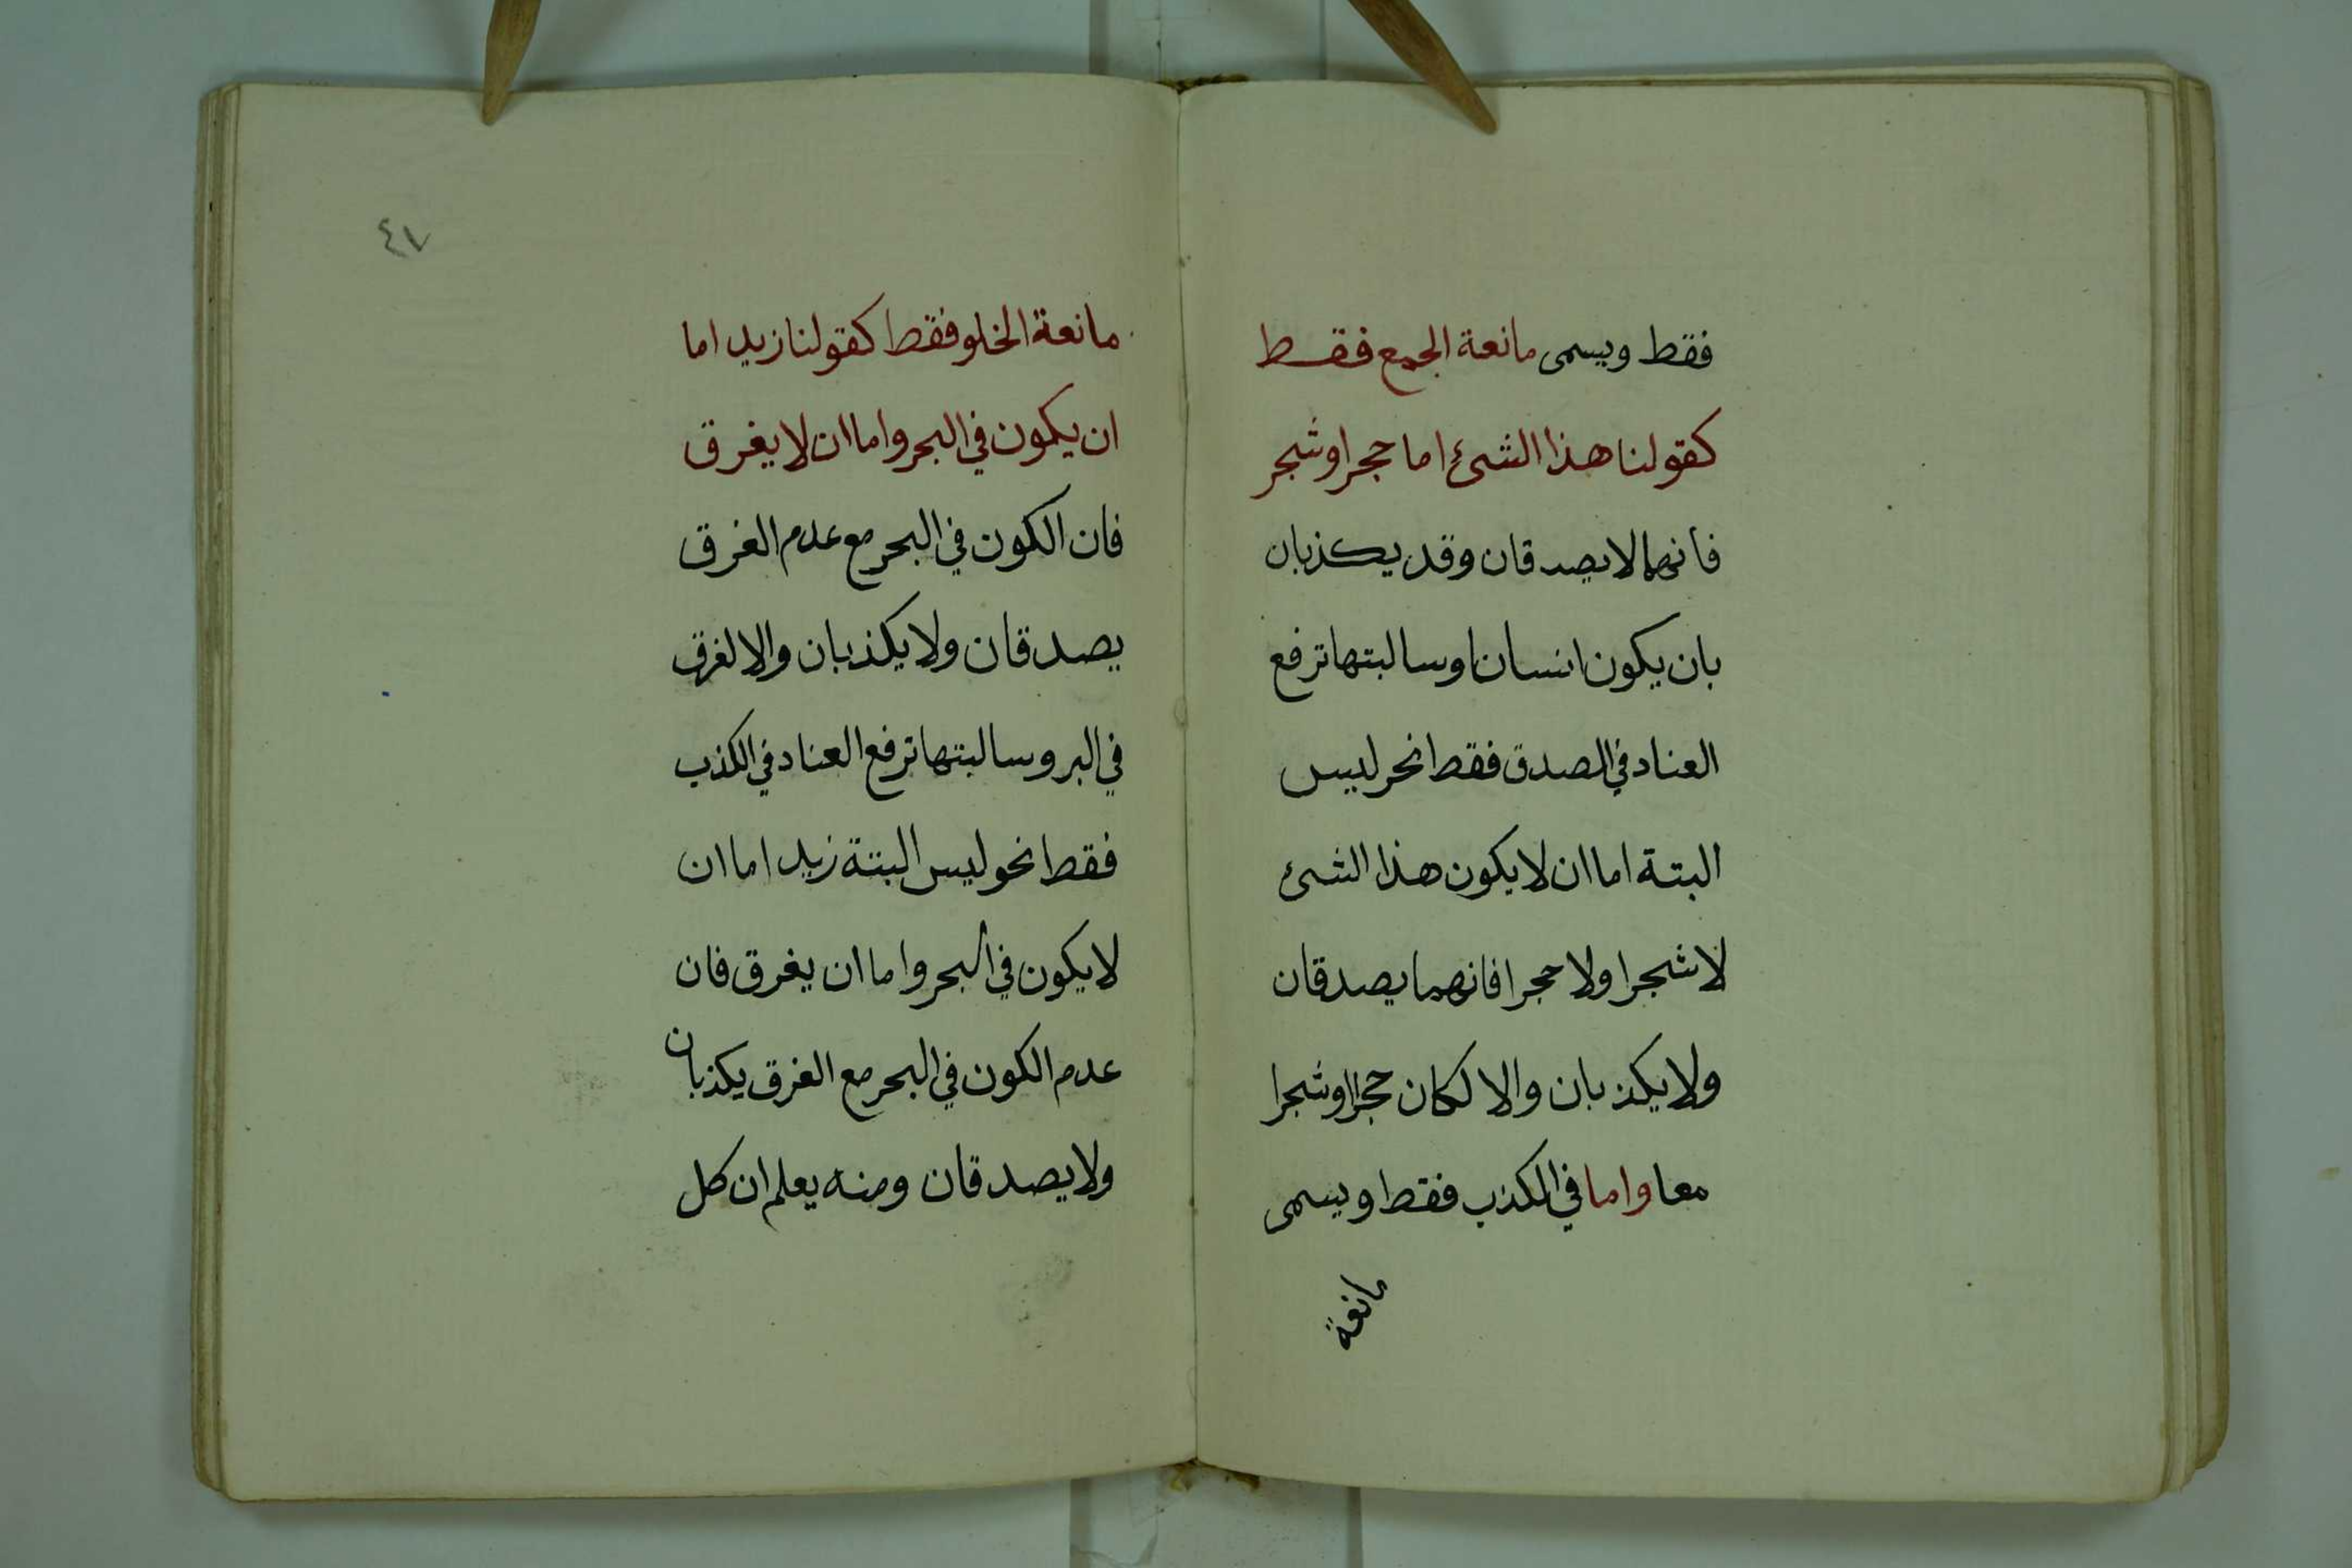 فقط ويسمى مانعة الجمع فقط
كقولنا هذا الشئ اما حجر او شجر
فانهما لا يصدقان وقد يكذبان
بان يكون انسانا وسالبتها ترفع
العناد في الصدق فقط نحو ليس
البتة اما ان لا يكون هذا الشئ
لا شجرا ولا حجرا فانهما يصدقان
ولا يكذبان والا لكان حجرا وشجرا
معا واما في الكذب فقط ويسمى
مانعة
٤٧
مانعة الخلو فقط كقولنا زيد اما
ان يكون في البحر واما ان لا يغرق
فان الكون في البحر مع عدم الغرق
يصدقان ولا يكذبان والا لغرق
في البر وسالبتها ترفع العناد في الكذب
فقط نحو ليس البتة زيد اما ان
لا يكون في البحر واما ان يغرق فان
عدم الكون في البحر مع الغرق يكذبان
ولا يصدقان ومنه يعلم ان كل